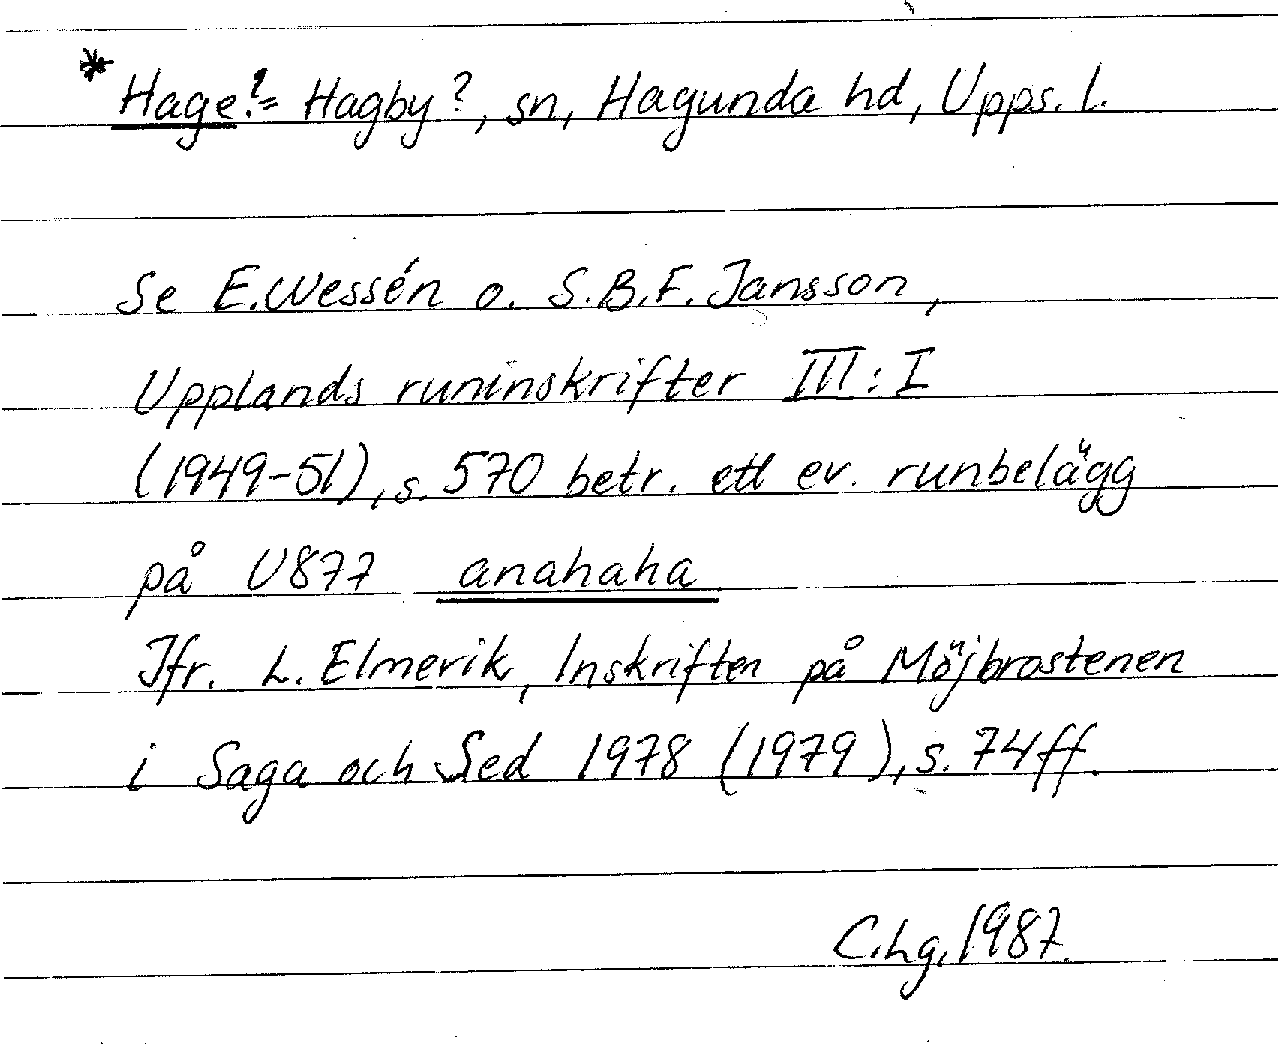 * Hage? = Hagby?, sn, Hagunda hd, Upps. l.
Se E. Wessén o. S.B.F. Jansson,
Upplands runinskrifter III:I
(1949-51), s. 570 betr. ett ev. runbelägg
på U877 anahaha
Jfr. L. Elmevik, Inskriften på Möjbrostenen
i Saga och Sed 1978 (1979), s. 74ff.
C.hg. 1987.